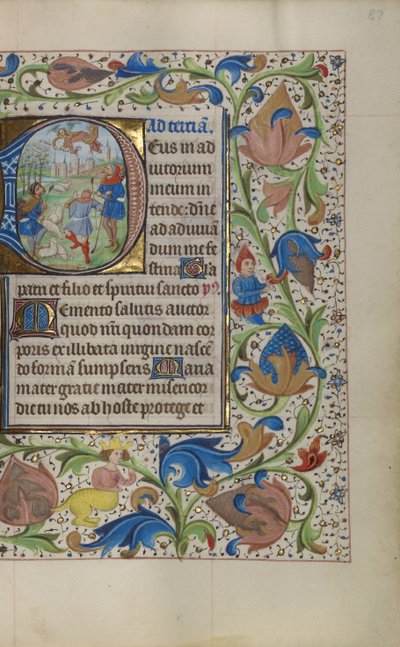 87
Ad terciā.
Deus in ad
iutorium
meum in
tende: dn̄e
ad adiuuā
dum me fe
stina Gla
patri et filio et spiritui sancto
Memento salutis auctor
quod nr̄i quondam cor
poris ex illibata uirgine nasce
do formā sumpseris Maria
mater gratie mater misericor
die tu nos ab hoste protege et